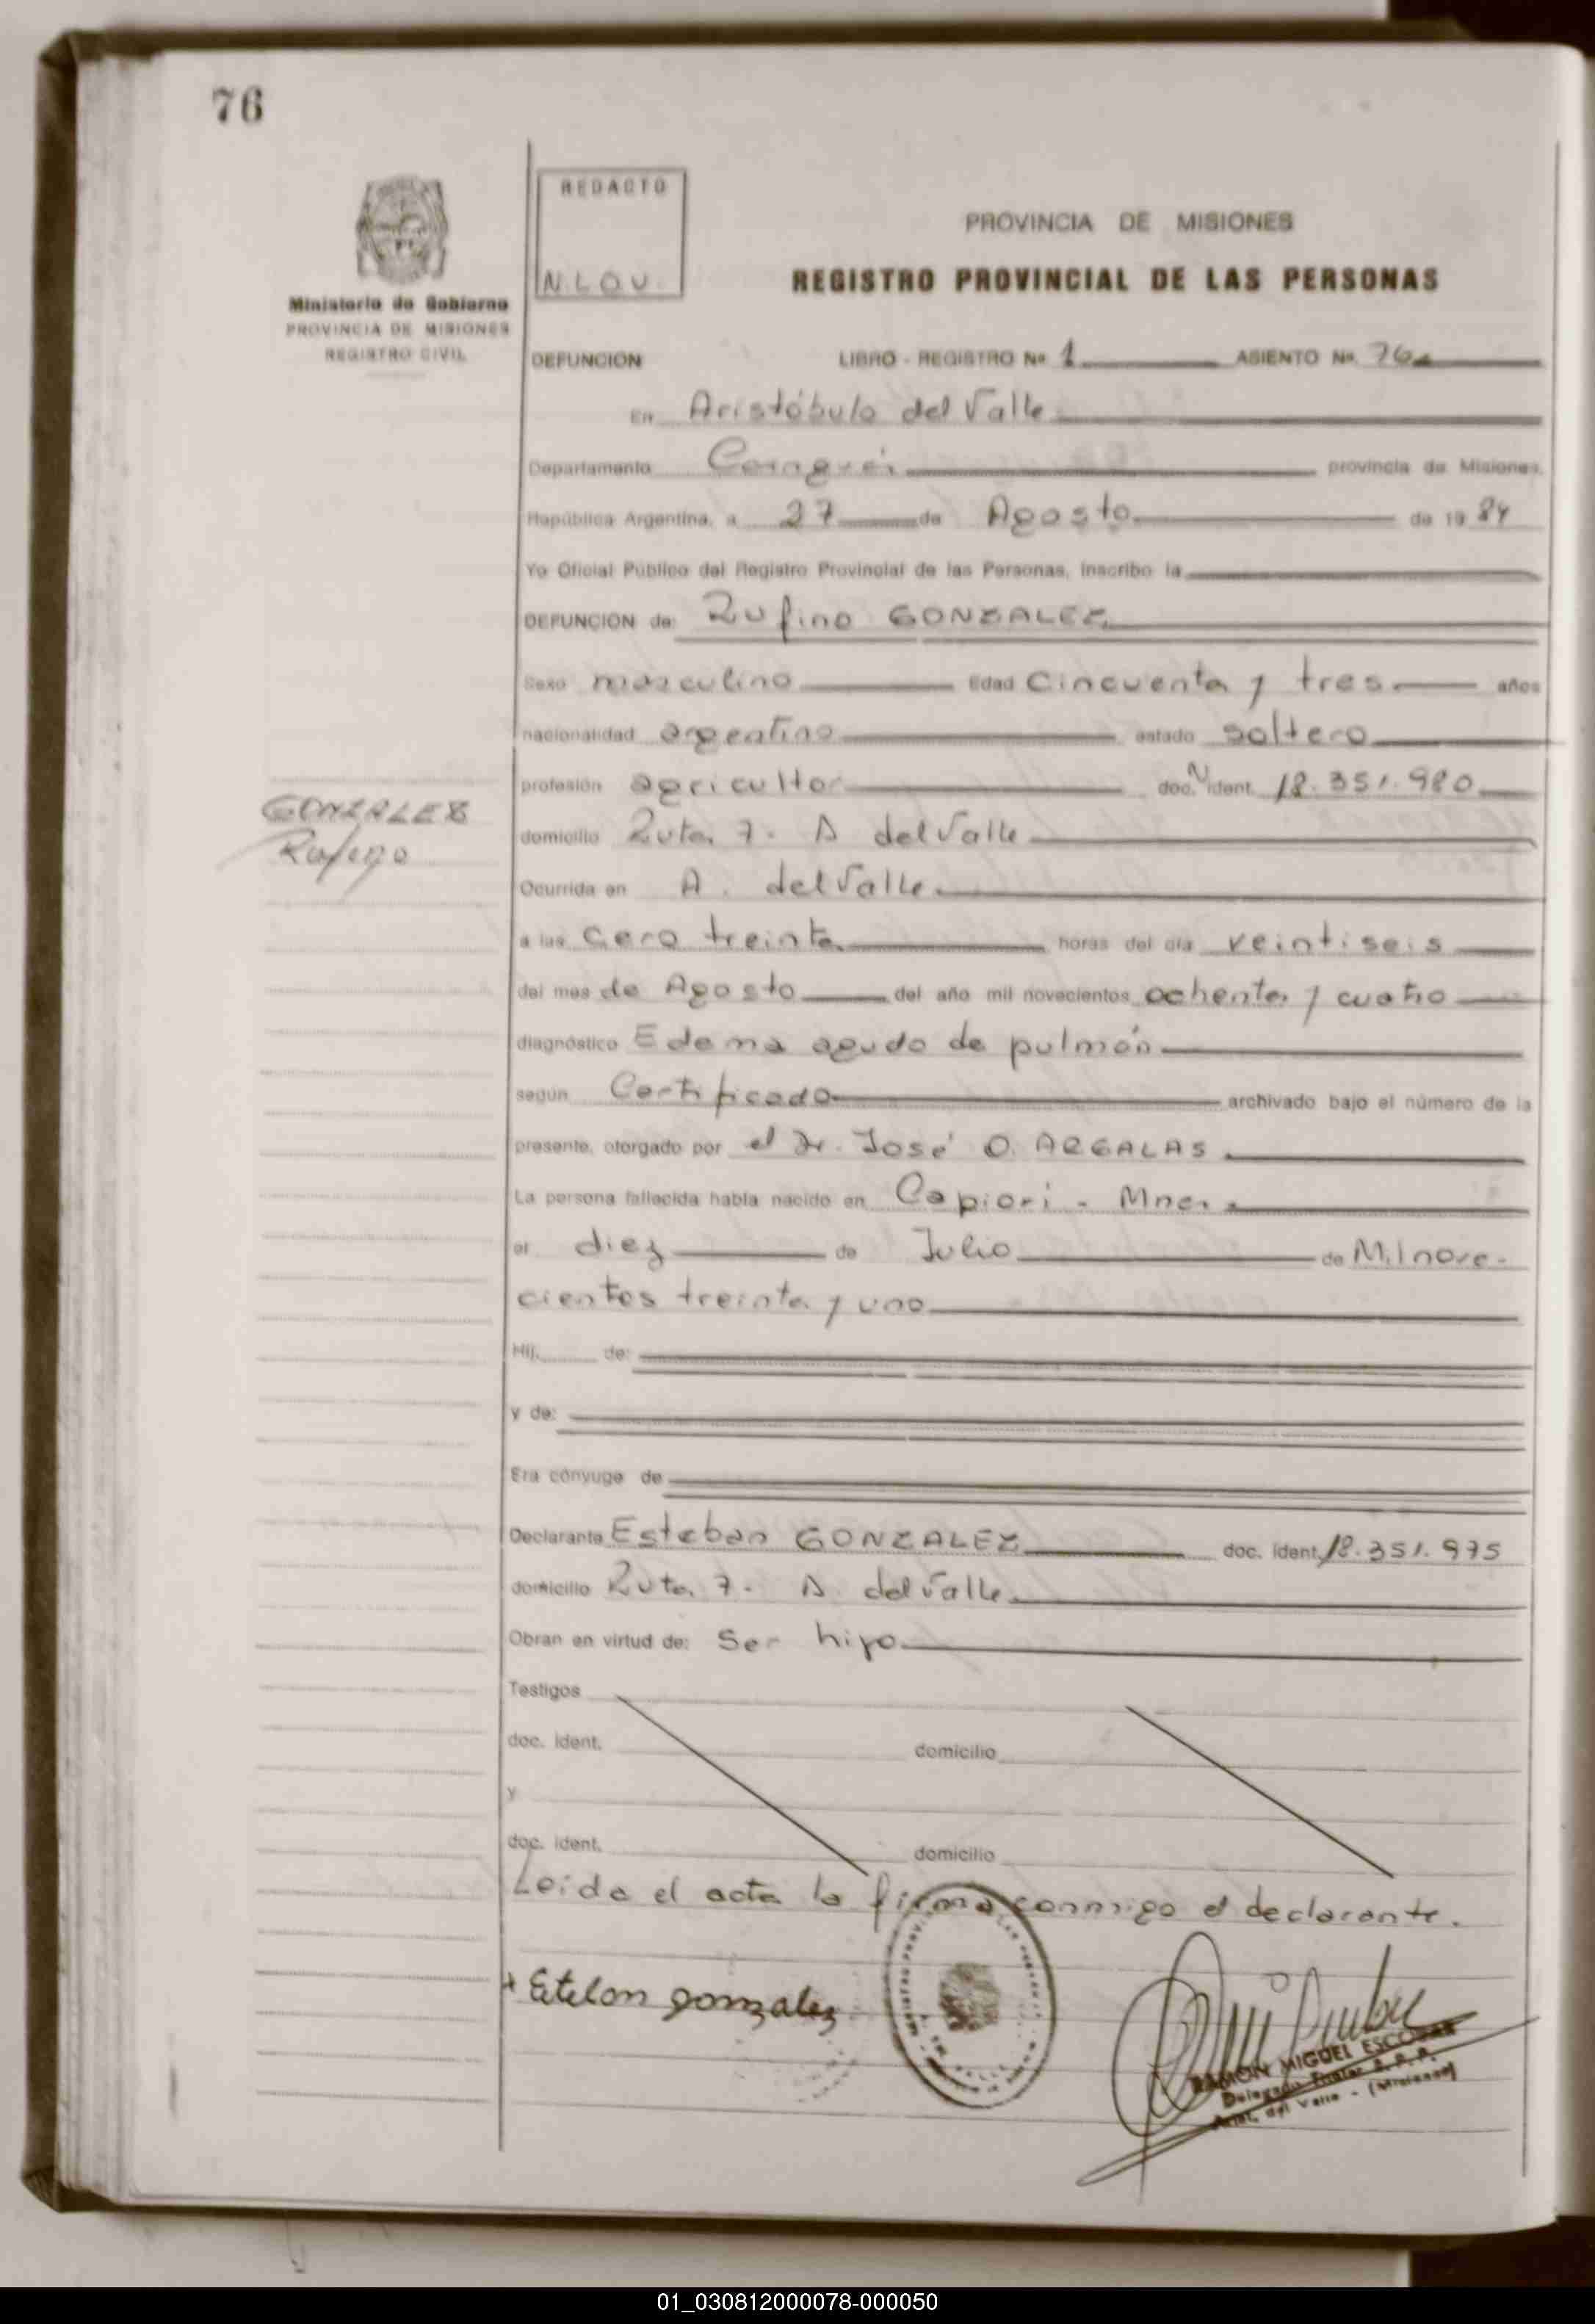 76
REDACTO
N.L.O.V.
Ministerio de Gobierno
PROVINCIA DE MISIONES
REGISTRO CIVIL
PROVINCIA DE MISIONES
REGISTRO PROVINCIAL DE LAS PERSONAS
DEFUNCION LIBRO - REGISTRO Nº 1 ASIENTO Nº 76
En Aristóbulo del Valle
Departamento Cainguás provincia de Misiones,
República Argentina, a 27 de Agosto de 19 84
Yo Oficial Público del Registro Provincial de las Personas, inscribo la
DEFUNCION de: Rufino GONZALEZ
Sexo masculino Edad Cincuenta y tres años
nacionalidad argentino estado soltero
profesión agricultor doc. N ident. 18.351.980
GONZALEZ
Rufino
domicilio Ruta 7. A del Valle
Ocurrida en A. del Valle
a las Cero treinta horas del día veintiseis
del mes de Agosto del año mil novecientos ochenta y cuatro
diagnóstico Edema agudo de pulmón
según Certificado archivado bajo el número de la
presente, otorgado por el Dr. José O. ARGALAS
La persona fallecida había nacido en Capiovi - Mnes.
el diez de Julio de Milnove-
cientos treinta y uno
Hij de:
y de:
Era cónyuge de
Declarante Esteban GONZALEZ doc. ident. 18.351.975
domicilio Ruta 7. A. del Valle
Obran en virtud de: Ser hijo
Testigos
doc. ident. domicilio
y
doc. ident. domicilio
Leída el acta la firma conmigo el declarante.
+ Estelon gonzalez
RAMON MIGUEL ESCOBAR
Delegado Titular R.P.P.
Arist. del Valle - (Misiones)
01_030812000078-000050